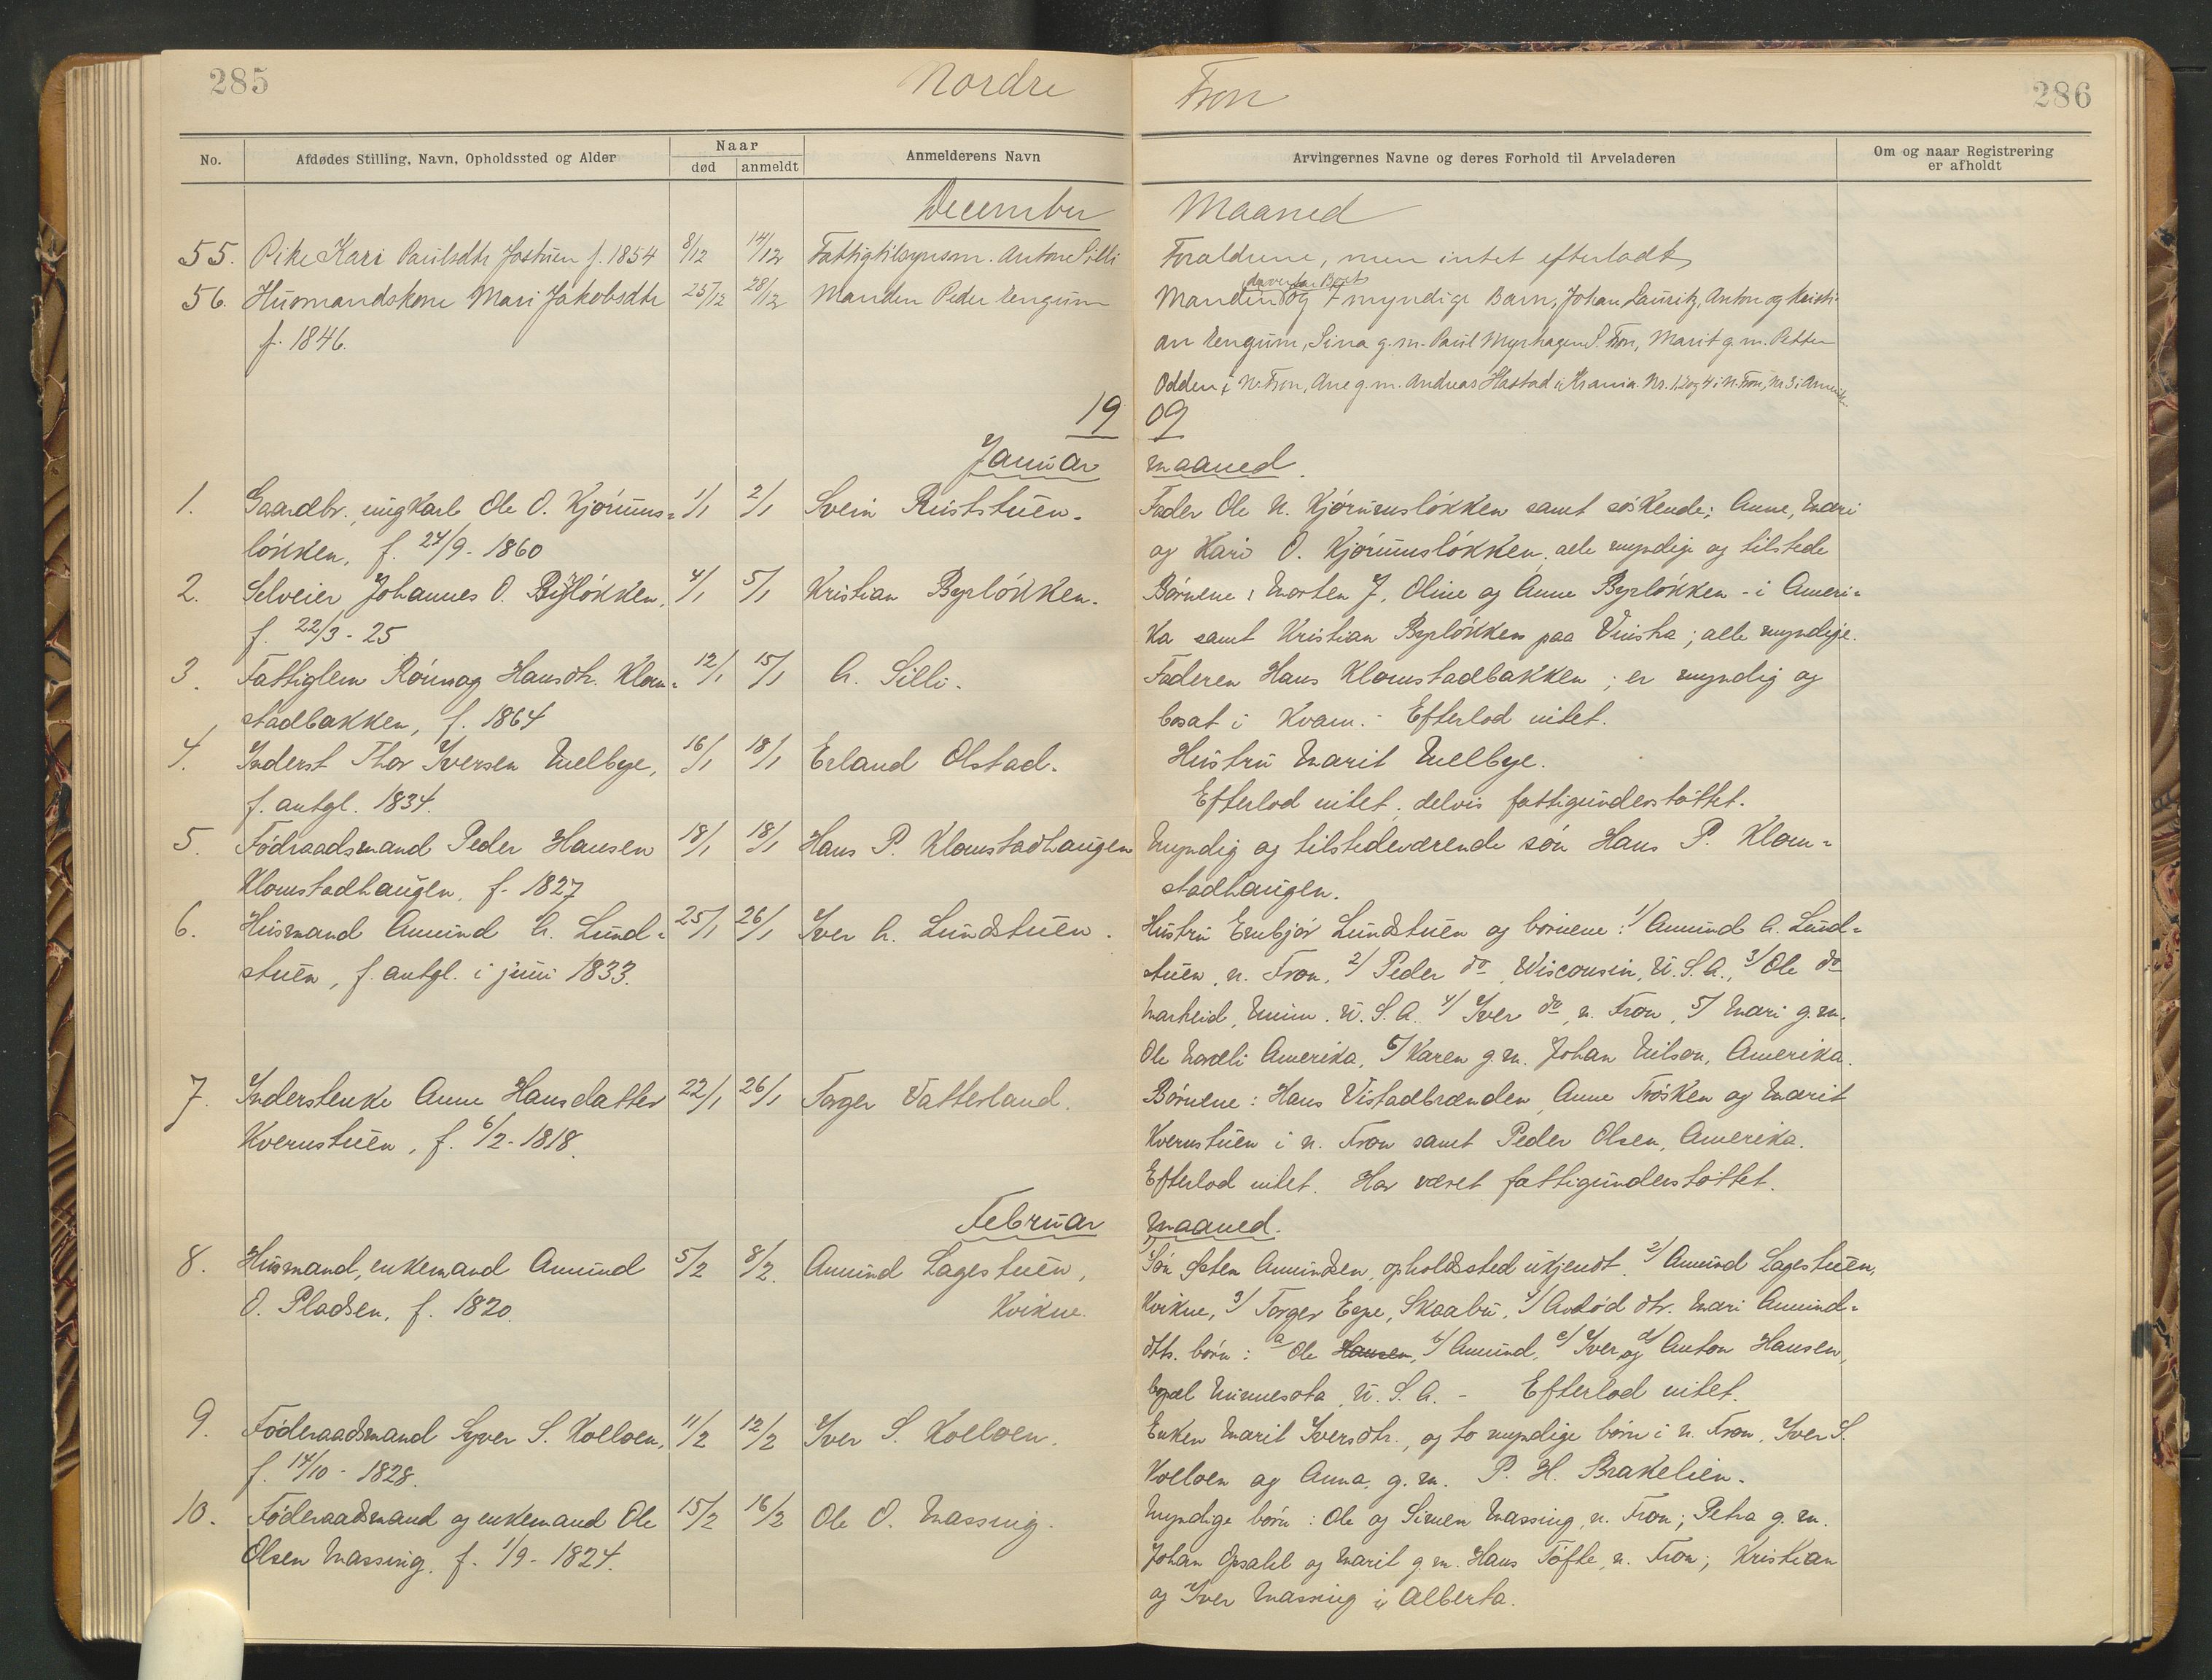 285
Nordre
Fron
286
No.
Afdødes Stilling, Navn, Opholdssted og Alder
Naar
død
anmeldt
Anmelderens Navn
Arvingernes Navne og deres Forhold til Arveladeren
Om og naar Registrering
er afholdt
December Maaned
55. Pike Kari Paulsdtr Jostuen f. 1854 8/12 14/12 Fattigtilsynsm. Anton Silli Foraldrene, men intet efterladt
56. Husmandskone Mari Jakobsdtr 25/12 28/12 Manden Peder Lengum Manden og 7 myndige Barn, Johan, Lauritz, Anton og Kristi-
f. 1846. an Lengum, Sina g.m. Paul Myrhagen S. Fron, Marit g.m. Petter
Odden i N. Fron, Ane g.m. Andreas Hastad i Krania. Nr. 1, 2 og 4 i N. Fron, Nr 3 i Amerik
19 09
Januar maaned.
1. Gaardbr., ungkarl Ole O. Kjørums= 1/1 2/1 Svein Ruststuen. Fader Ole N. Kjørumsløkken samt søskende: Anne, Mari
løkken, f. 24/9 - 1860 og Kari O. Kjørumsløkken, alle myndige og tilstede
2. Selveier Johannes O. Byrløkken, 4/1 5/1 Kristian Byrløkken. Børnene: Morten J, Oline og Anne Byrløkken - i Ameri=
f. 22/3 - 25 ka samt Kristian Byrløkken paa Vinstra; alle myndige.
3. Fattiglem Rønnog Hansdtr. Klom= 12/1 15/1 A. Silli. Faderen Hans Klomstadbakken; er myndig og
stadbakken, f. 1864 bosat i Kvam. - Efterlod intet.
4. Inderst Thor Iversen Melbye, 16/1 18/1 Erland Olstad. Hustru Marit Melbye.
f. antgl. 1834. Efterlod intet, delvis fattigunderstøttet.
5. Fødraadsmand Peder Hansen 18/1 18/1 Hans P. Klomstadhaugen Myndig og tilstedeværende søn Hans P. Klom=
Klomstadhaugen, f. 1827 stadhaugen.
6. Husmand Amund A. Lund= 25/1 26/1 Iver A. Lundstuen. Hustru Embjør Lundstuen og børnene: 1/ Amund A. Lund=
stuen, f. antgl. i juni 1833. stuen, n. Fron, 2/ Peder do, Wisconsin, U.S.A., 3/ Ole do
Minn. U.S.A. 4/ Iver do, n. Fron, 5/ Mari g.m.
Ole Amerika, 6/ Karen g.m. Johan Nilson, Amerika.
7. Inderstenke Anne Hansdatter 22/1 26/1 Torger Vatterland. Børnene: Hans Vistadbrænden, Anne Frøsken og Marit
Kvernstuen, f. 6/2 - 1818. Kvernstuen i n. Fron samt Peder Olsen, Amerika.
Efterlod intet. Har været fattigunderstøttet.
Februar maaned.
8. Husmand, enkemand Amund 5/2 8/2. Amund Lagestuen, 1/ Søn Østen Amundsen, opholdssted ukjendt. 2/ Amund Lagestuen,
O. Pladsen, f. 1820. Kvikne. Kvikne, 3/ Torger Egge, Skaabu, 4/ Avdød dtr. Mari Amund=
dtrs. børn: a/ Ole Hansen, b/ Amund, c/ Iver og d/ Anton Hansen,
Minnesota, U.S.A. - Efterlod intet.
9. Føderaadsmand Syver S. Kolloen, 11/2 12/2 Iver S. Kolloen. Enken Marit Iversdtr., og to myndige børn i n. Fron, Iver S.
f. 14/10 - 1828. Kolloen og Anna, g.m. P. H. Brakelien.
10. Føderaadsmand og enkemand Ole 15/2 16/2 Ole O. Massing. Myndige børn: Ole og Simen Massing, n. Fron; Petra g.m.
Olsen Massing, f. 1/9 - 1824. Johan Opsahl og Marit g.m. Hans Tøfte, n. Fron; Kristian
og Iver Massing i Alberta.